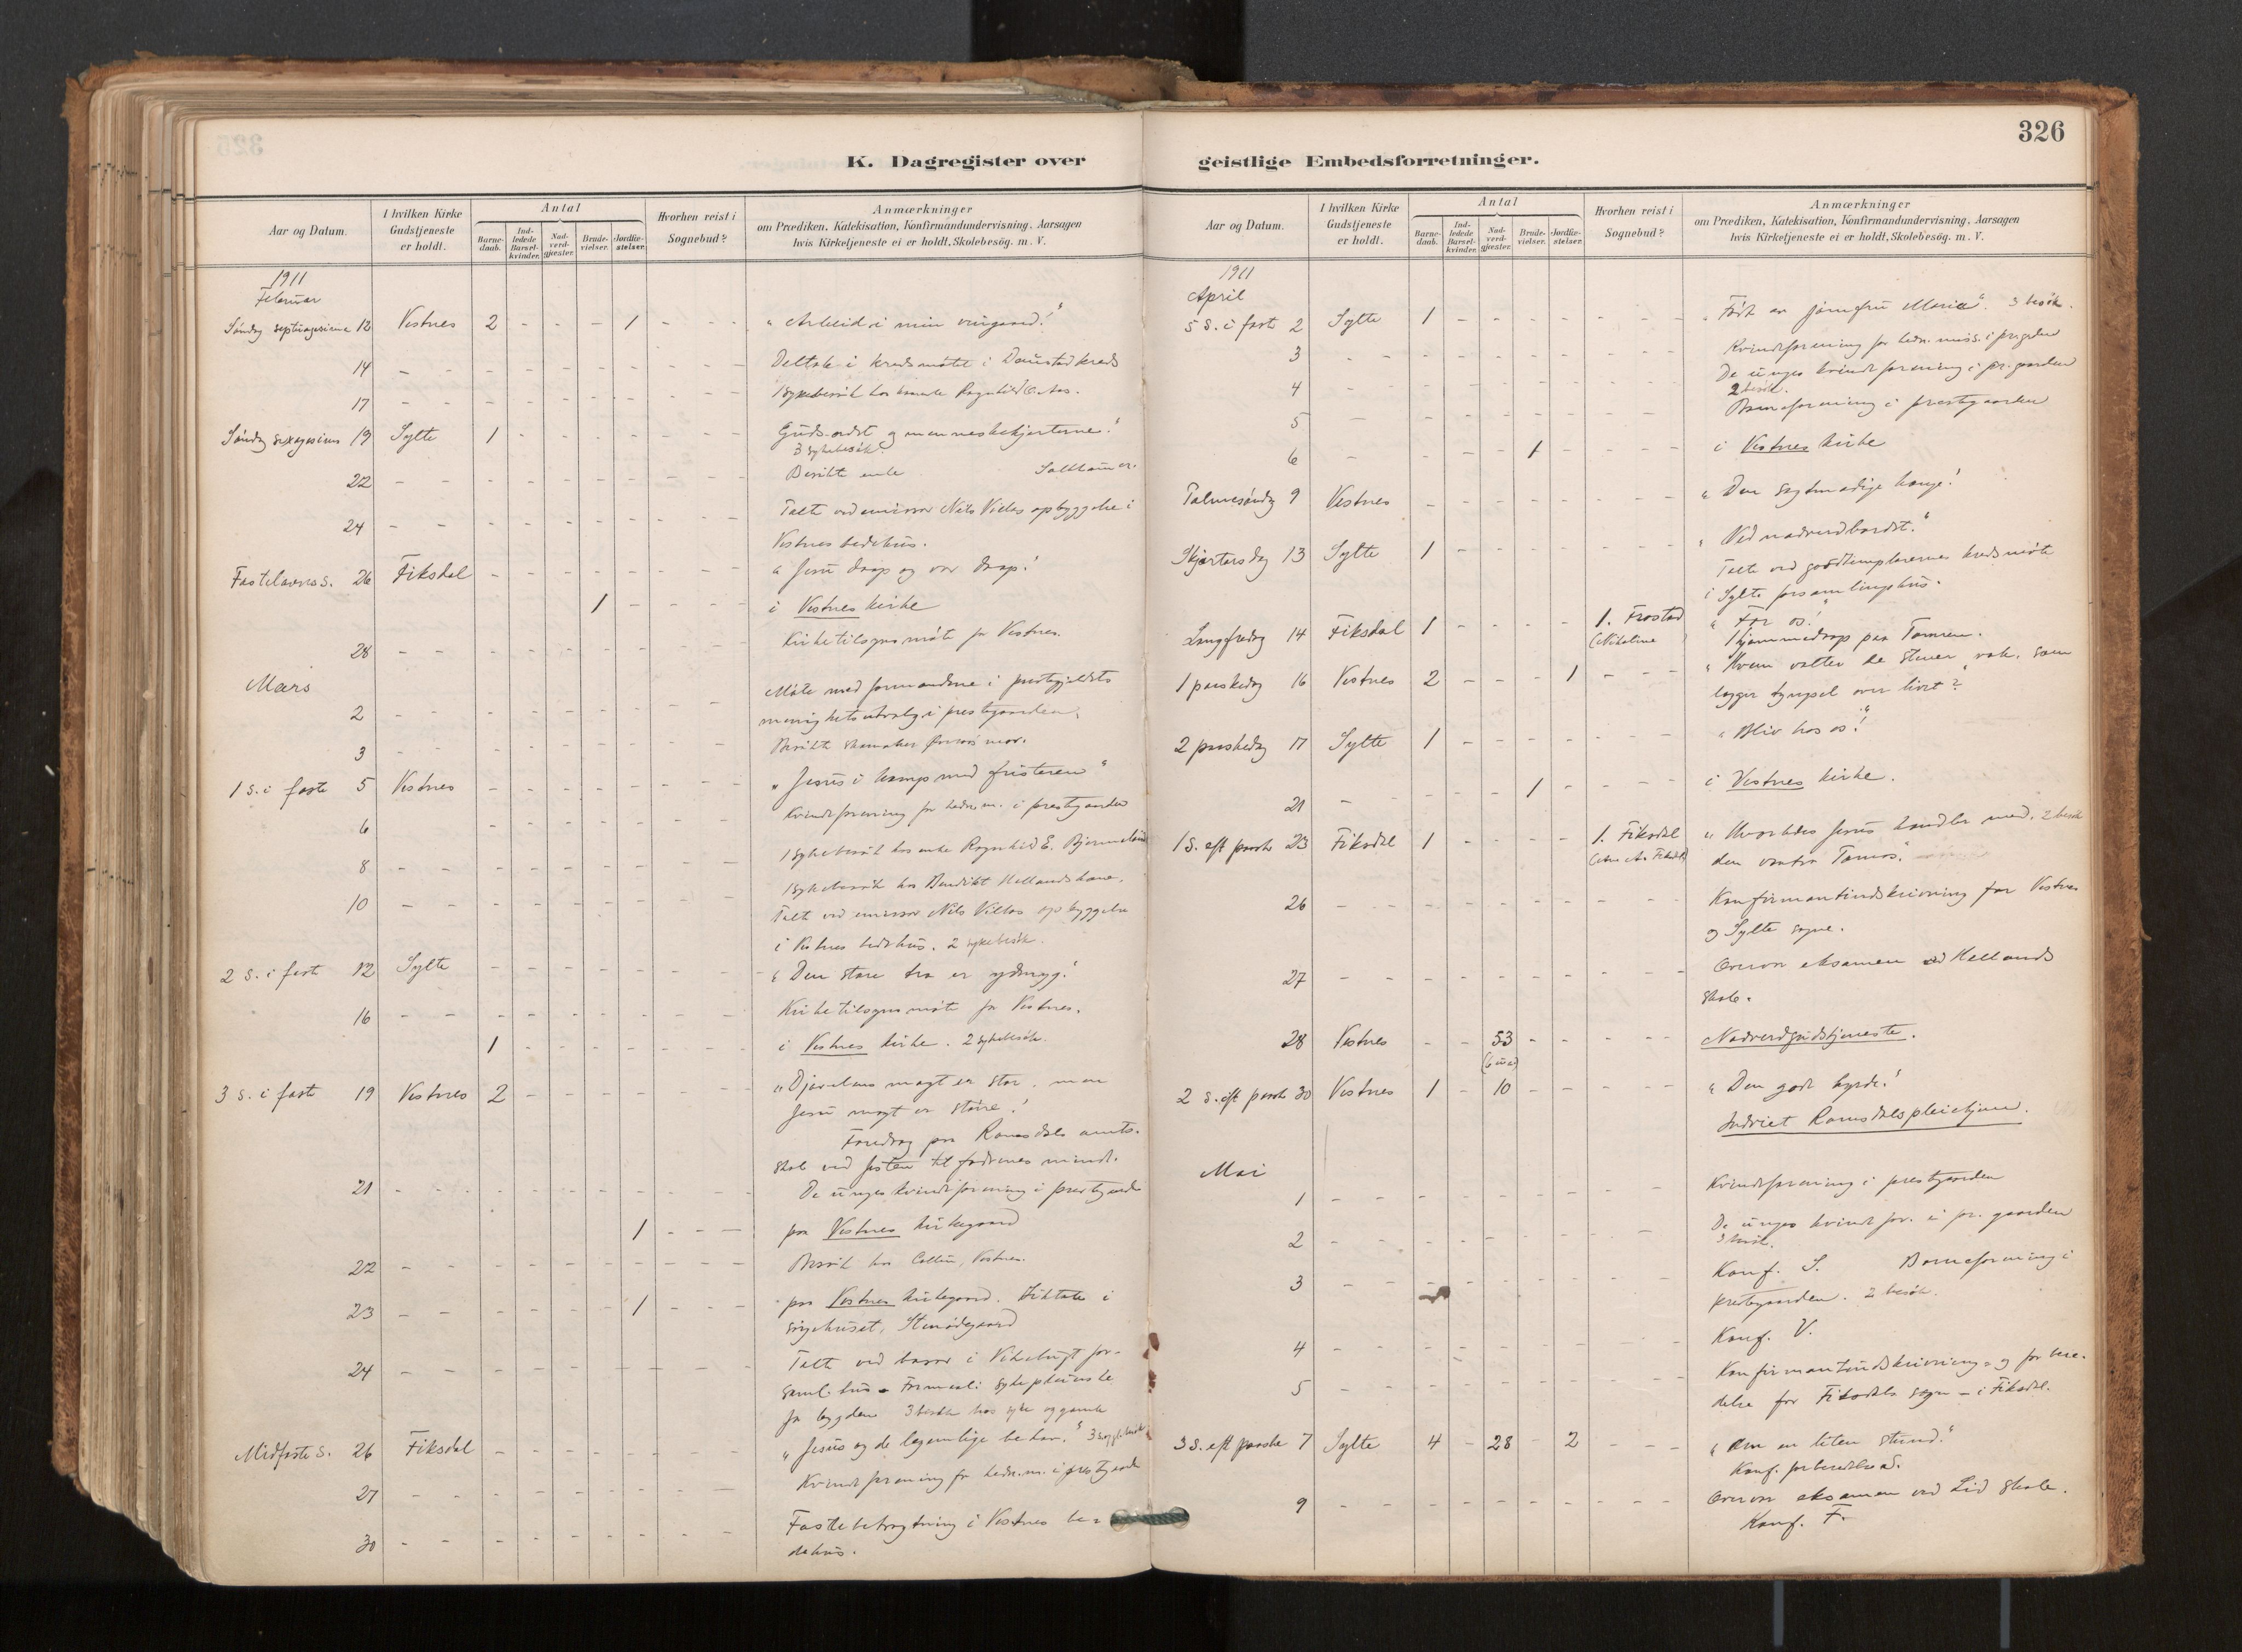 326
K. Dagregister over geistlige Embedsforretninger.
Aar og Datum.
I hvilken Kirke Gudstjeneste er holdt.
Antal
Barne-daab.
Ind-ledede Barsel-kvinder.
Nad-verd-gjæster.
Brude-vielser.
Jordfæ-stelser.
Hvorhen reist i Sognebud?
Anmærkninger
om Prædiken, Katekisation, Konfirmandundervisning, Aarsagen
hvis Kirketjeneste ei er holdt, Skolebesög. m. V.
1911
Februar
Søndag septuagesima 12 Vestnes 2 - - - 1 - - - „Arbeid i min vingaard!"
14 - - - - - - - - Deltok i kredsmøtet i Daugstad kreds
17 - - - - - - - - 1 sykebesøk hos
Søndag sexagesima 19 Sylte 1 - - - - - - - Guds ord og menneskehjerterne."
3 sykebesøk.
22 - - - - - - - - Besøkte enke
24 - - - - - - - - Talte ved emissær Nils Villas opbyggelse i
Vestnes bedehus.
Fastelavnss. 26 Fiksdal - - - - - - - - „Jesu daap og vor daap!
1 - - - - i Vestnes kirke
28 - - - - - - - - Kirketilsynsmøte for Vestnes.
Mars
2 - - - - - - - - Møte med formændene i prestegjeldets
menighetsutvalg i prestegaarden.
3 - - - - - - - - Besøkte
1 s. i faste 5 Vestnes - - - - - - - - „Jesus i kamp med fristeren"
6 - - - - - - - - Kvindeforening for hedn.m. i prestegaarden
8 - - - - - - - - 1 sykebesøk hos enke Ragnhild E.
10 - - - - - - - - 1 sykebesøk hos Benedikt
Talt ved emissær Nils Villas opbyggelse
i Vestnes bedehus. 2 sykebesøk.
2 s. i fast 12 Sylte - - - - - - - - „Den store tro er ydmyg!
16 - - - - - - - - Kirketilsynsmøte for Vestnes.
1 - - - - - - - i Vestnes kirke. 2 sykebesøk.
3 s. i fast 19 Vestnes 2 - - - - - - - „Djævelens magt er stor, men
Jesu magt er større!
Foredrag paa Romsdals amts-
skole ved festen til fædrenes minde.
21 - - - - - - - - De unges kvindeforening i prestegaard
1 - - - paa Vestnes kirkegaard
22 - - - - - - - - Besøk hos Collin, Vestnes.
23 - - - - 1 - - - paa Vestnes kirkegaard. Liktale i
sørgehuset,
24 - - - - - - - - Talte ved basar i Vikebugt for-
saml. hus. Formaal: sykepleierske
for bygden 3 besøk hos syke og gamle
Midfaste s. 26 Fiksdal - - - - - - - - „Jesus og de legemlige behov."
27 - - - - - - - - Kvindeforening for hedn.m. i prestegaard
30 - - - - - - - - Fastebetragtning i Vestnes be-
dehus.
Aar og Datum.
I hvilken Kirke Gudstjeneste er holdt.
Antal
Barne-daab.
Ind-ledede Barsel-kvinder.
Nad-verd-gjæster.
Brude-vielser.
Jordfæ-stelser.
Hvorhen reist i Sognebud?
Anmærkninger
om Prædiken, Katekisation, Konfirmandundervisning, Aarsagen
hvis Kirketjeneste ei er holdt, Skolebesög. m. V.
1911
April
5 S. i fast 2 Sylte 1 - - - - - - - „Født av jomfru Maria". 3 besøk.
3 - - - - - - - - Kvindeforening for hedn. miss. i prgrden
4 - - - - - - - - De unges kvindeforening i pr. gaarden
2 besøk.
5 - - - - - - - - Barneforening i prestegaarden
6 - - - - 1 - - - - i Vestnes kirke
Palmesøndag 9 Vestnes - - - - - - - - „Den sagtmodige konge!
Skjærtorsdag 13 Sylte 1 - - - - - - - „Ved nadverdbordet."
Talte ved goodtemplarernes kredsmøte
i Sylte forsamlingshus.
Langfredag 14 Fiksdal 1 - - - - 1. Frostad „For os!"
1 hjemmedaap paa Tomren.
1 paaskedag 16 Vestnes 2 - - - 1 - - - „Hvem vælter de stener væk, som
lægger tyngsel over livet?
2 paaskedag 17 Sylte 1 - - - - - - - „Bliv hos os!"
21 - - - - 1 - - - - i Vestnes kirke.
1 S. eft paaske 23 Fiksdal 1 - - - - 1. Fiksdal „Hvorledes Jesus handler med 2 besøk
den vantro Tomas."
26 - - - - - - - - Konfirmantindskrivning for Vestnes
og Sylte sogne.
27 - - - - - - - - Overvar eksamen ved Hellands
skole.
28 Vestnes - - 53 - - - - - Nadverdgudstjeneste.
2 S. eft paaske 30 Vestnes 1 - 10 - - - - - „Den gode hyrde!
Indviet Romsdals pleiehjem.
Mai
1 - - - - - - - - Kvindeforening i prestegaarden
2 - - - - - - - - De unges kvindefor. i pr. gaarden
3 besøk.
3 - - - - - - - - Konf. S. Barneforening i
prestegaarden. 2 besøk.
4 - - - - - - - - Konf. V.
5 - - - - - - - - Konfirmantindskrivning - og forbere-
delse for Fiksdals sogn - i Fiksdal.
3 S. eft paaske 7 Sylte 4 - 28 - 2 - - - „Om en liten stund."
Konf. forberedelse
9 - - - - - - - - Overvar eksamen ved Lid skole.
Konf. F.